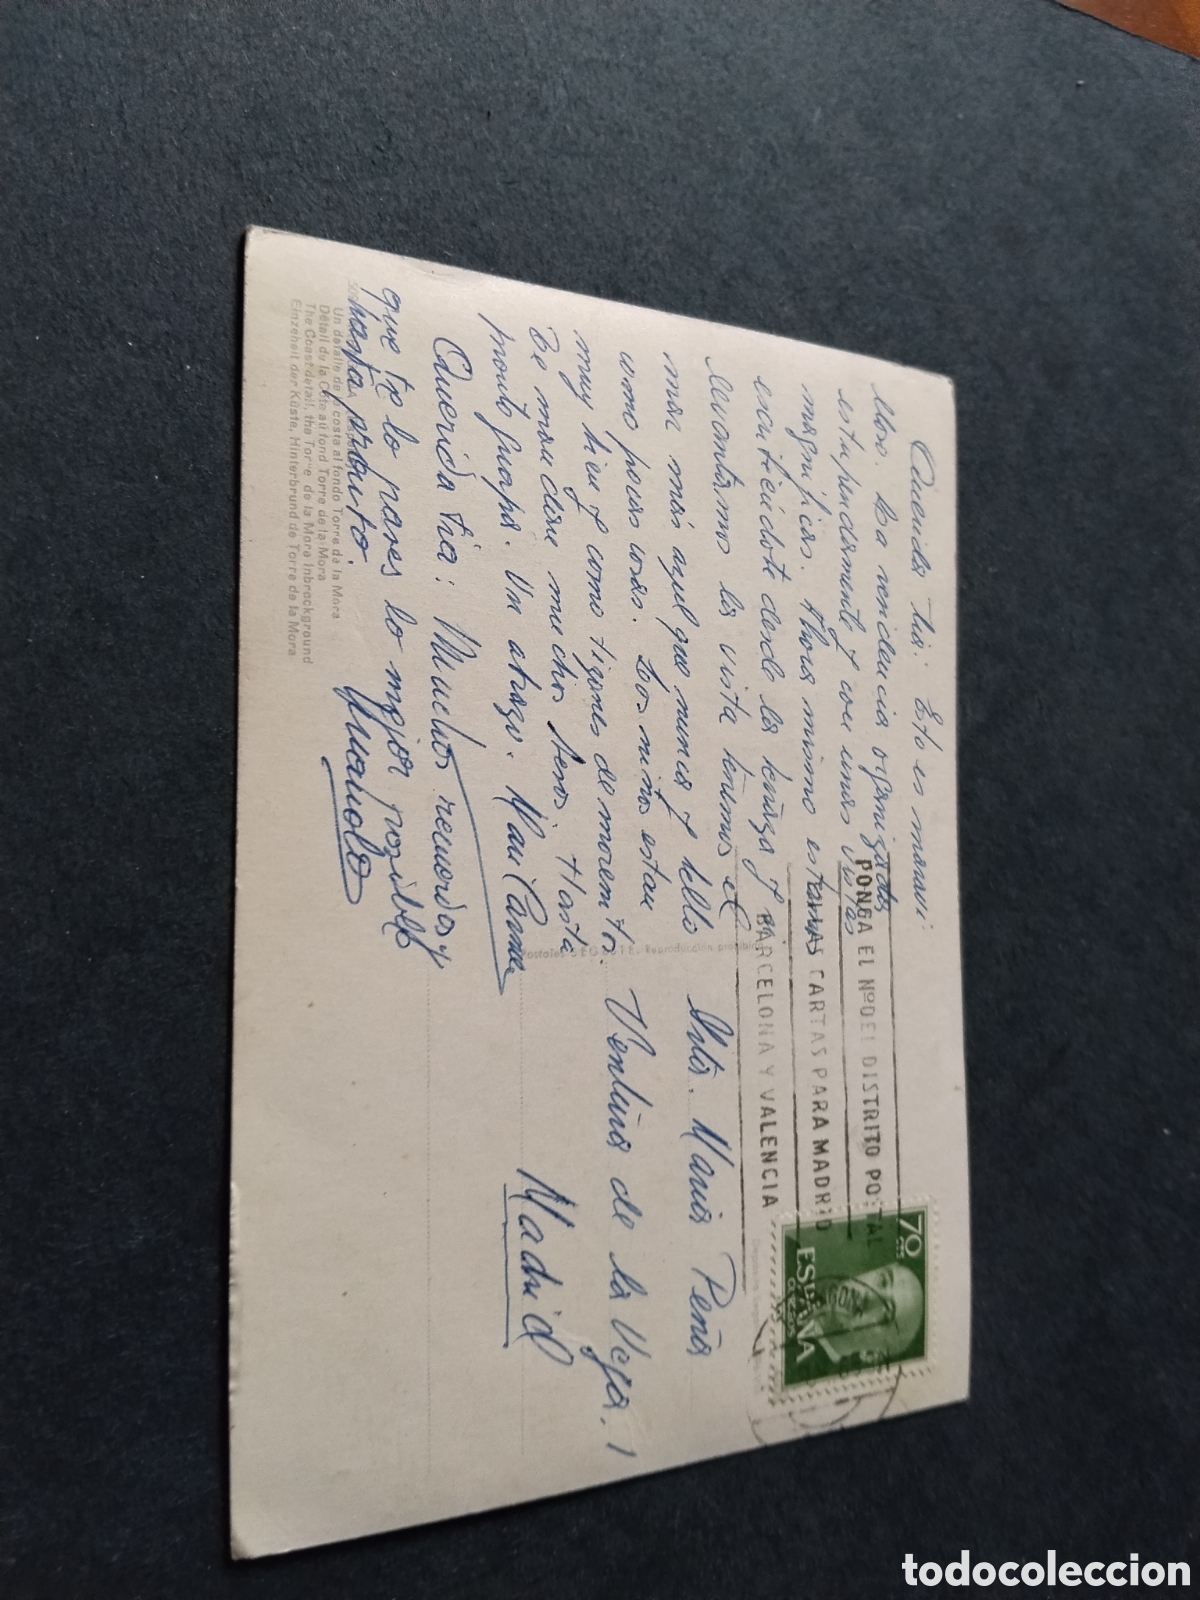 Querida tia: Esto es maravi:
lloso. La residencia organizada
estupendamente y con unas vistas
magnificas. Ahora mismo estamos
escribiéndote desde la terraza y si
levantamos la vista tenemos el
mar más azul que nunca y bello
como pocas cosas. Los niños estan
muy bien y como tizones de morenitos.
Te mandan muchos besos. Hasta
pronto guapa. Un abrazo. Mari Carmen
Querida tia: Muchos recuerdos y
que te lo pases lo mejor posible
hasta pronto.
Manolo
Un detalle de la costa al fondo Torre de la Mora
Détail du la Côte au fond Torre de la Mora
The Coast detail, the Torre de la Mora inbrackground
Einzeheit der Küste, Hinterbrund de Torre de la Mora
Postales Reproducción prohibida
PONGA EL Nº DEL DISTRITO POSTAL
EN LAS CARTAS PARA MADRID
BARCELONA Y VALENCIA
70 CTS
ESPAÑA
CORREOS
Srta. Maria Peña
Ventura de la Vega, 1
Madrid
todocoleccion